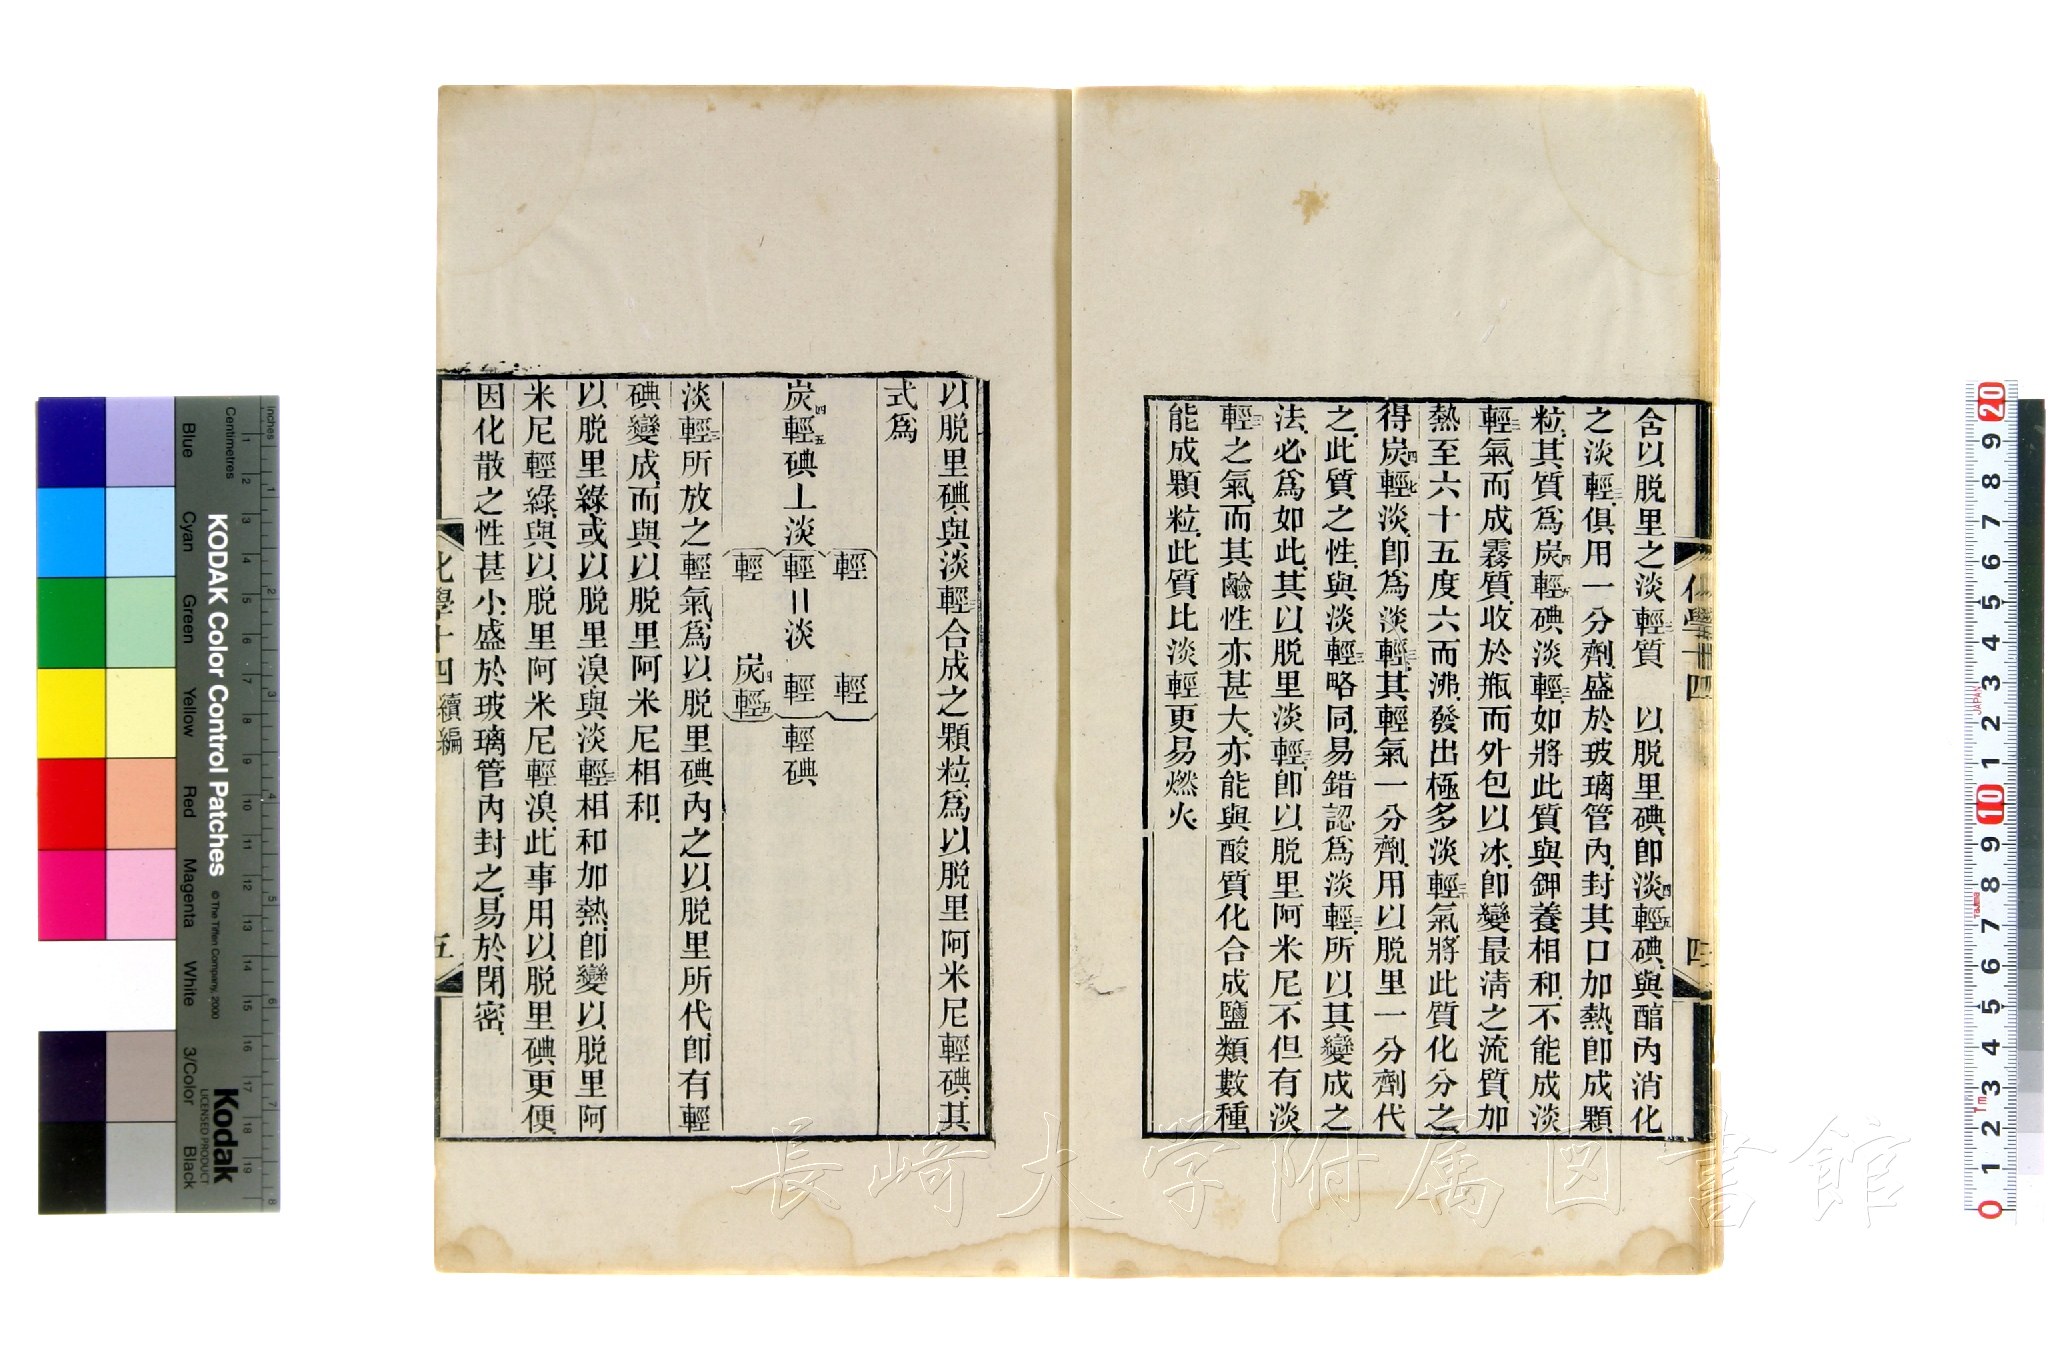 含以脱里之淡輕三質　以脱里碘卽淡四輕五碘與醕內消化
之淡輕三俱用一分劑盛於玻璃管內封其口加熱卽成顆
粒其質爲炭四輕五碘淡輕三如將此質與鉀養相和不能成淡
輕三氣而成霧質收於瓶而外包以冰卽變最淸之流質加
熱至六十五度六而沸發出極多淡輕三氣將此質化分之
得炭四輕七淡卽爲淡輕三其輕氣一分劑用以脱里一分劑代
之此質之性與淡輕三略同易錯認爲淡輕三所以其變成之
法必爲如此其以脱里淡輕三卽以脱里阿米尼不但有淡
輕三之氣而其鹼性亦甚大亦能與酸質化合成鹽類數種
能成顆粒此質比淡輕更易燃火
化學十四
四
以脱里碘與淡輕三合成之顆粒爲以脱里阿米尼輕碘其
式爲
輕　輕
炭四輕五碘⊥淡輕〢淡　輕　輕碘
輕　炭四輕五
淡輕三所放之輕氣爲以脱里碘內之以脱里所代卽有輕
碘變成而與以脱里阿米尼相和
以脱里綠或以脱里溴與淡輕三相和加熱卽變以脱里阿
米尼輕綠與以脱里阿米尼輕溴此事用以脱里碘更便
因化散之性甚小盛於玻璃管內封之易於閉密
化學十四續編
五
KODAK Color Control Patches
© The Tiffen Company, 2000
Kodak
LICENSED PRODUCT
Inches
Centimetres
Blue
Cyan
Green
Yellow
Red
Magenta
White
3/Color
Black
長崎大学附属図書館